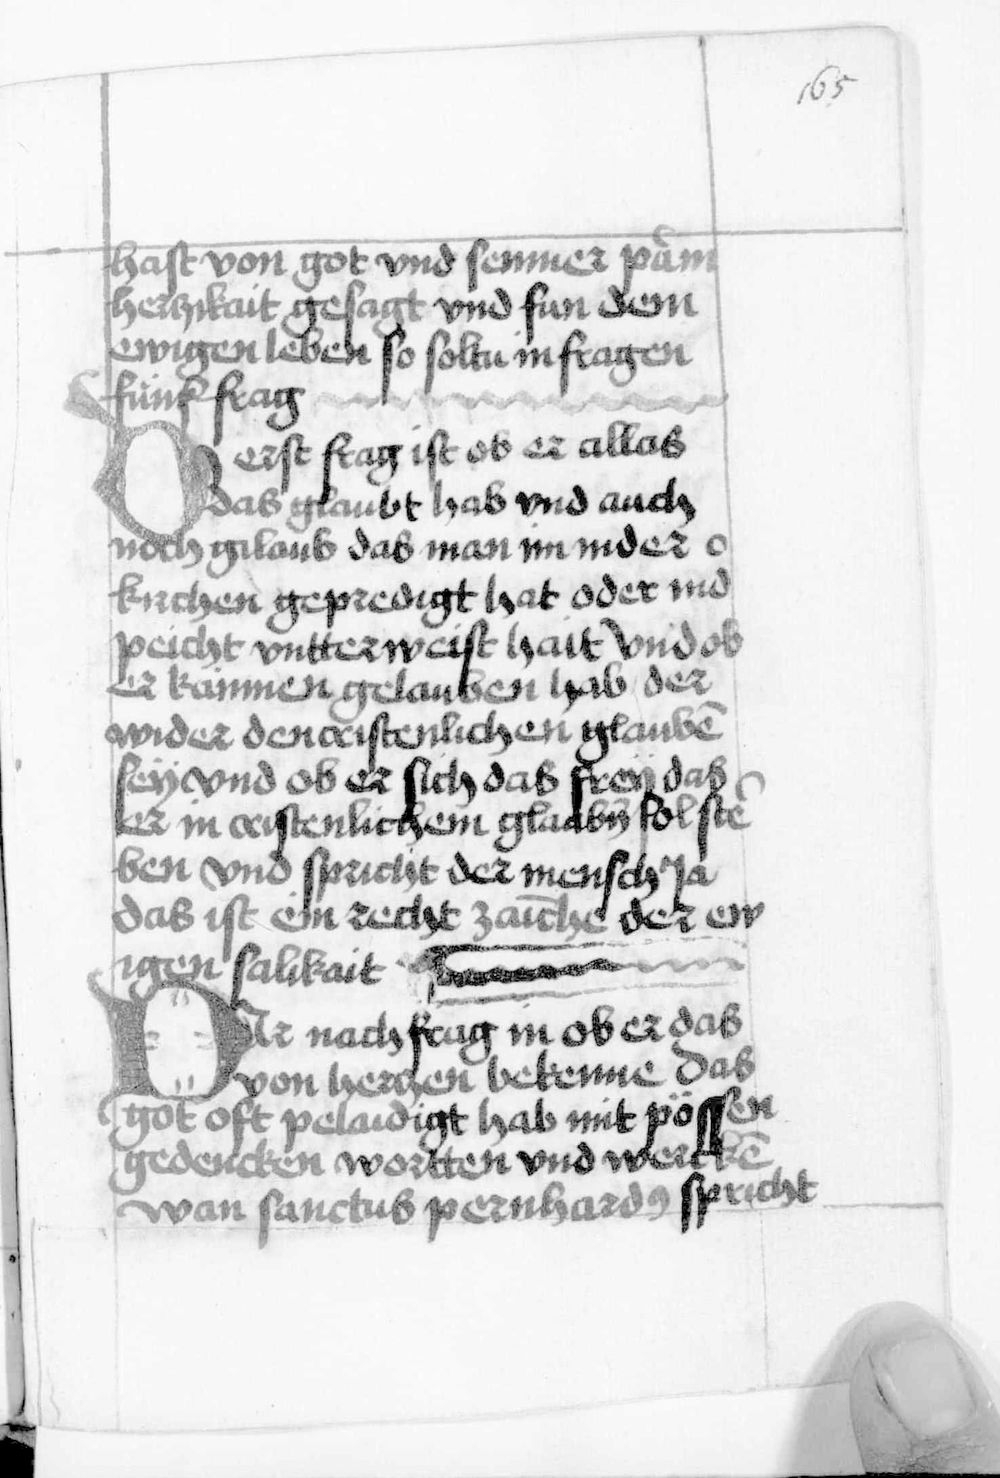 165
hast von got vnd senner pām
herczikait gesagt vnd fan dem
ewigen leben so soltu in fragen
fünf frag
D erst frag ist ob er allas
das glaubt hab vnd auch
noch gilaub das man im in der
kirchen gepredigt hat oder in d
peicht vntterweist hait Vnd ob
er kainnen gelauben hab der
wider den cristenlichen glaubē
seÿ vnd ob er sich das freÿ das
er in cristenlichem glaubn̄ sol stē
ben Vnd spricht der mensch Ja
das ist ein recht zaiche der ew
igen salikait
DAr nach frag in ob er das
von herczen bekenne Das
got oft pelaidigt hab mit pössen
gedencken wortten vnd werckē
wan sanctus pernhardꝯ spricht